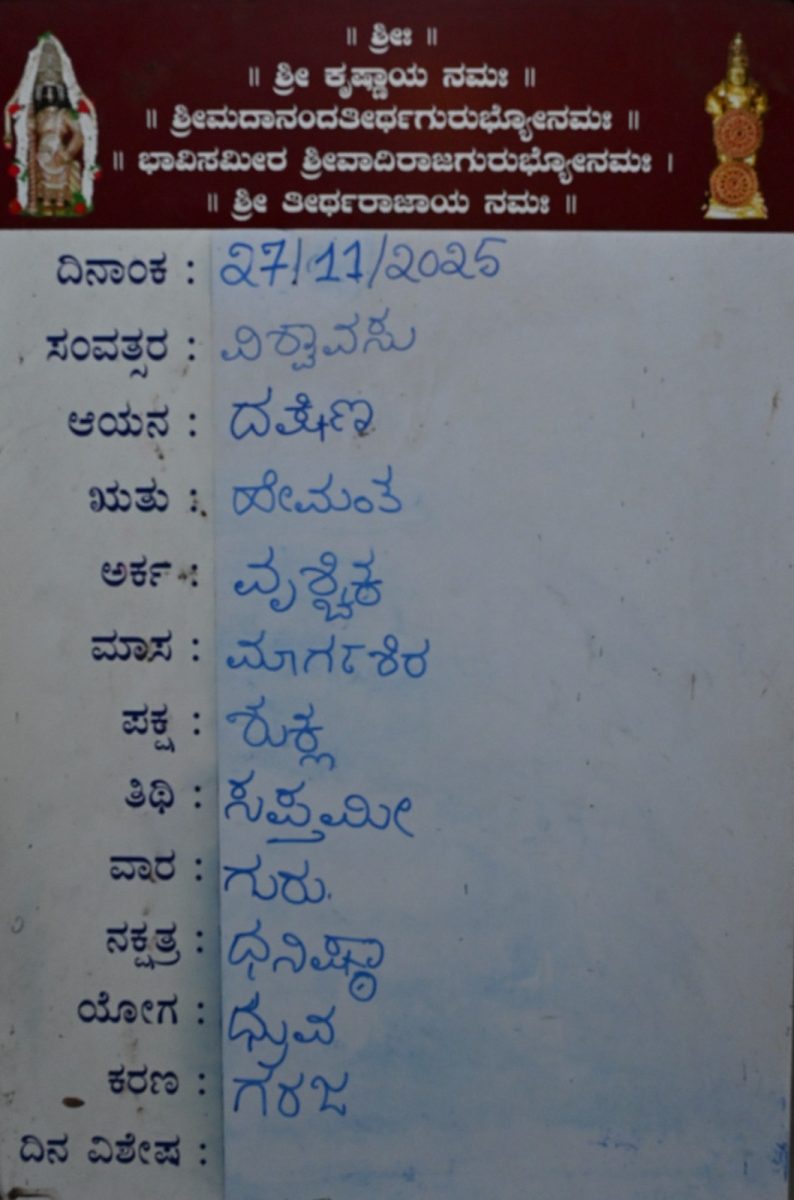 ॥ ಶ್ರೀಃ ॥
॥ ಶ್ರೀ ಕೃಷ್ಣಾಯ ನಮಃ ॥
॥ ಶ್ರೀಮದಾನಂದತೀರ್ಥಗುರುಭ್ಯೋನಮಃ ॥
॥ ಭಾವಿಸಮೀರ ಶ್ರೀವಾದಿರಾಜಗುರುಭ್ಯೋನಮಃ ।
॥ ಶ್ರೀ ತೀರ್ಥರಾಜಾಯ ನಮಃ ॥
ದಿನಾಂಕ : 27/11/2025
ಸಂವತ್ಸರ : ವಿಶ್ವಾವಸು
ಆಯನ : ದಕ್ಷಿಣ
ಋತು : ಹೇಮಂತ
ಅರ್ಕ : ವೃಶ್ಚಿಕ
ಮಾಸ : ಮಾರ್ಗಶಿರ
ಪಕ್ಷ : ಶುಕ್ಲ
ತಿಥಿ : ಸಪ್ತಮೀ
ವಾರ : ಗುರು.
ನಕ್ಷತ್ರ : ಧನಿಷ್ಠಾ
ಯೋಗ : ಧ್ರುವ
ಕರಣ : ಗರಜ
ದಿನ ವಿಶೇಷ :